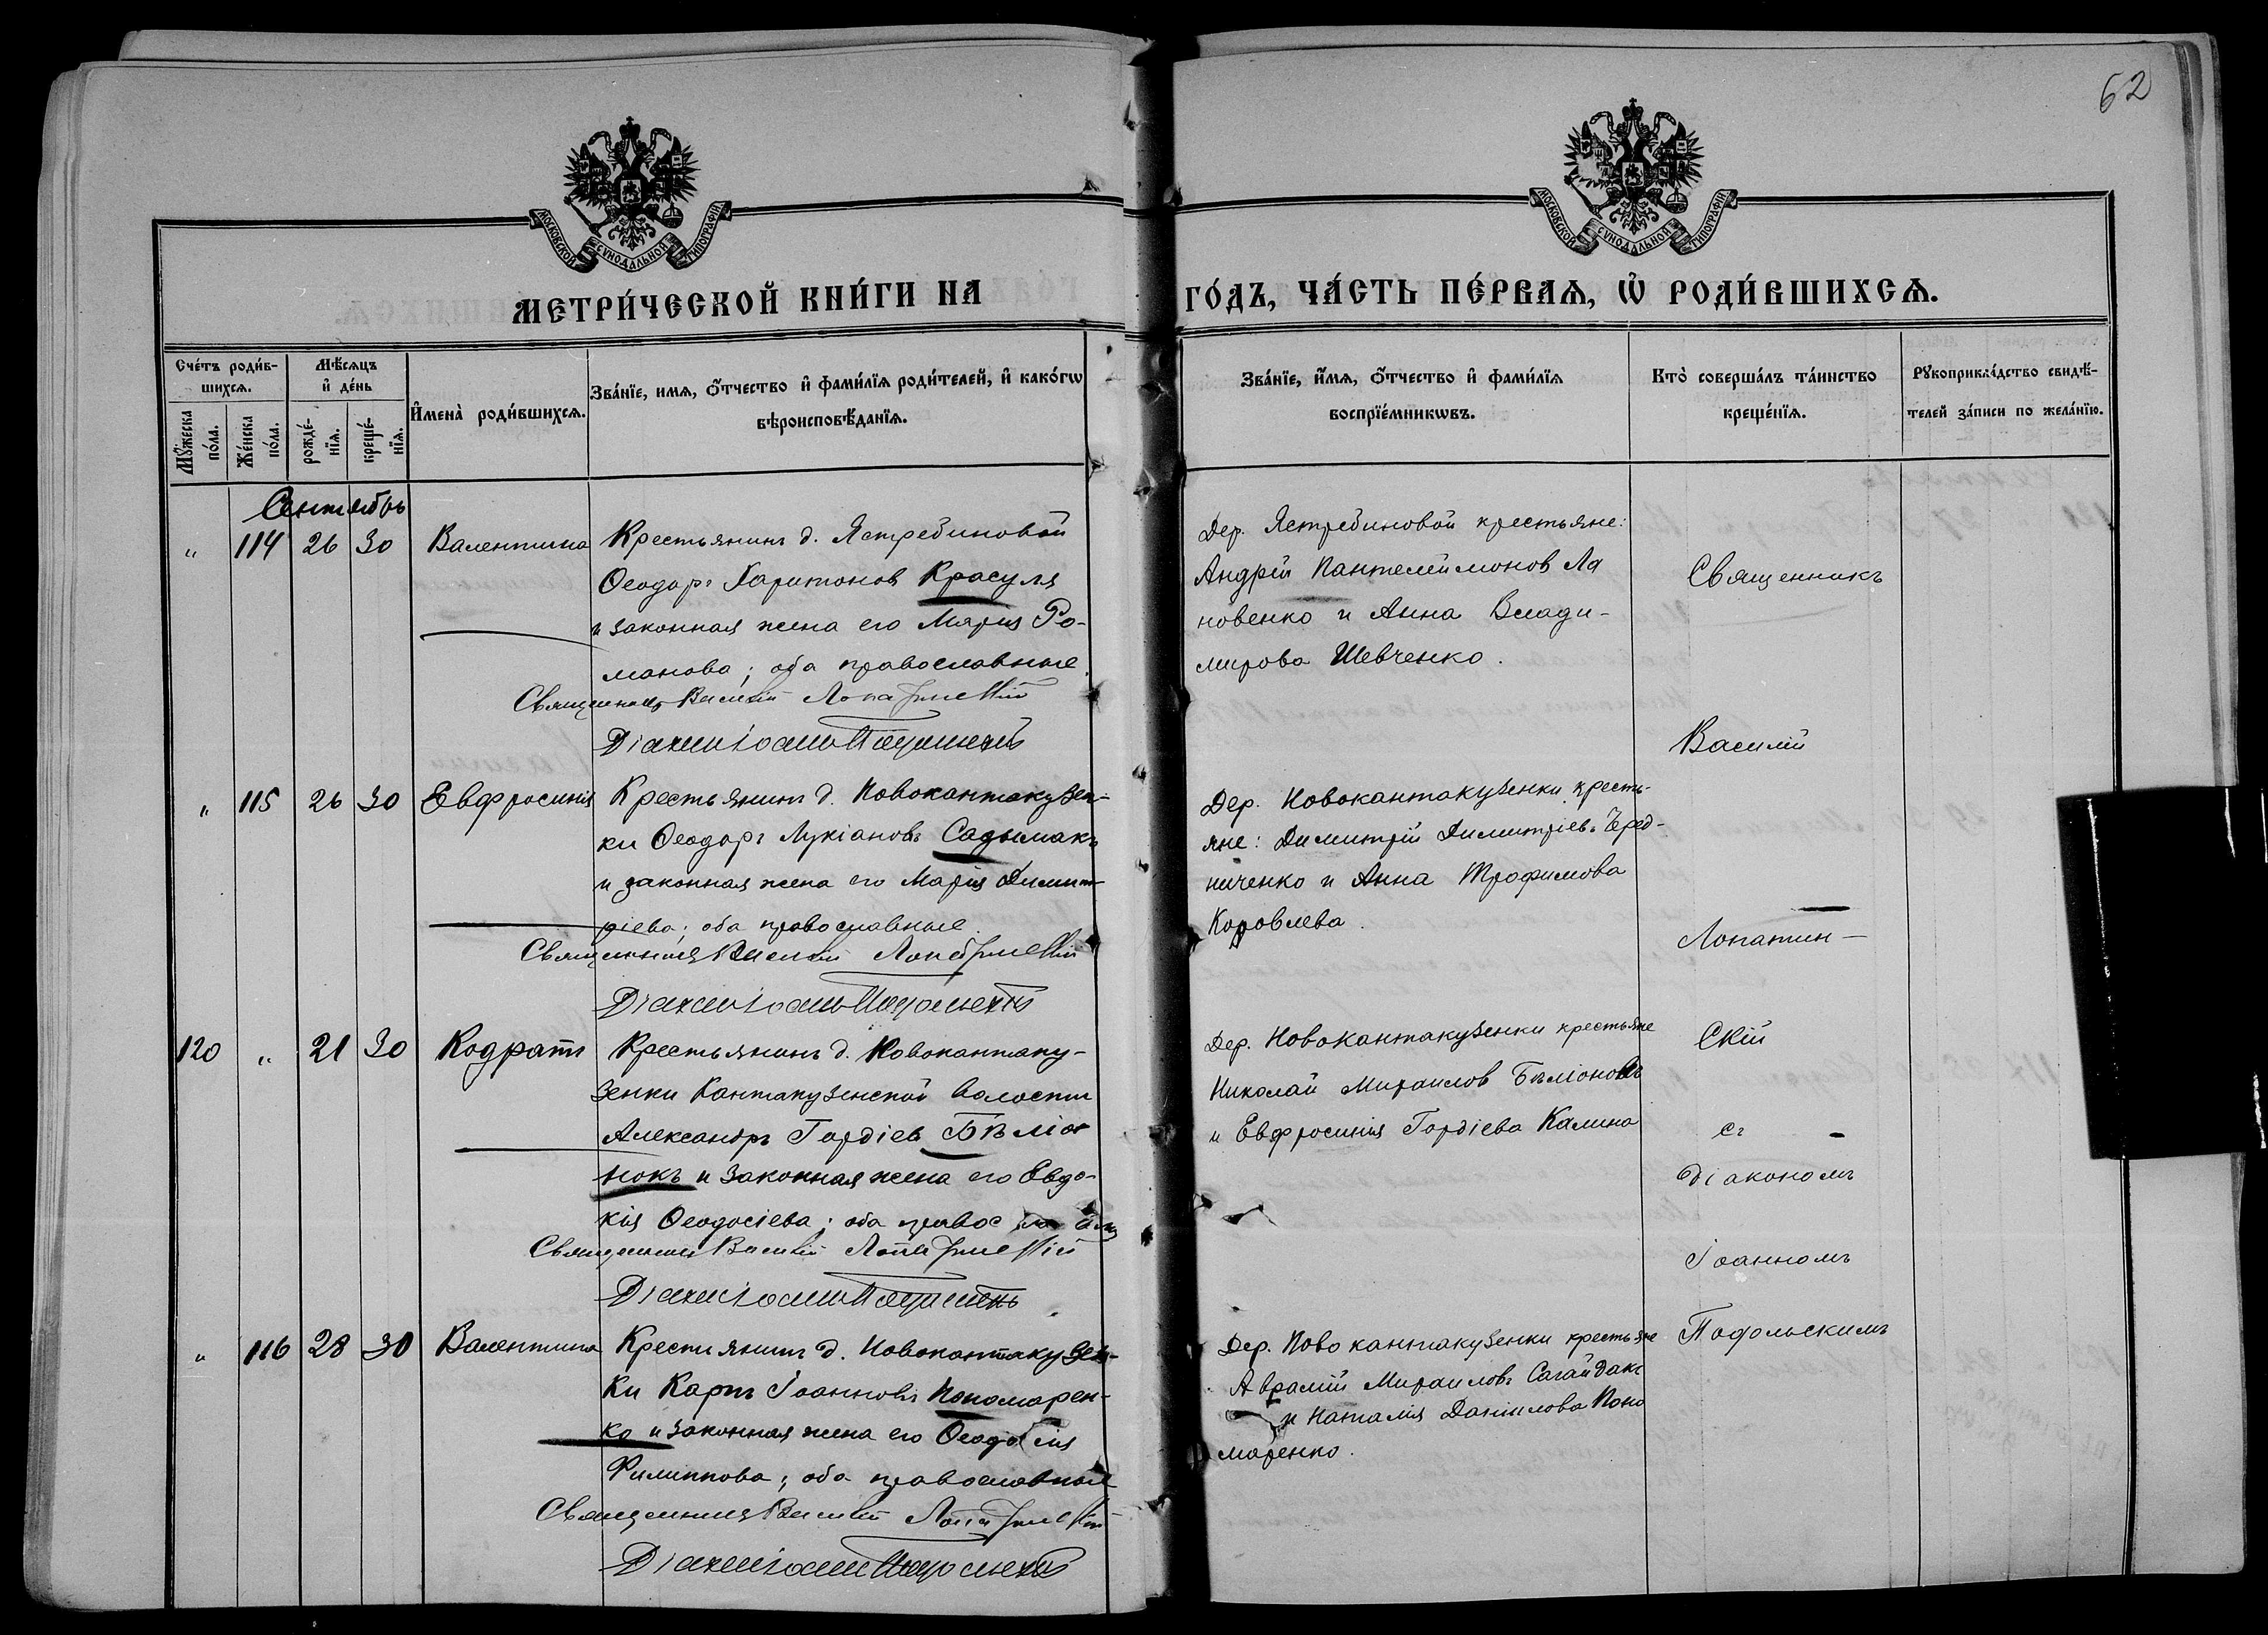 62
МОСКОВСКОЙ СѴНОДАЛЬНОЙ ТИПОГРАФІИ
МОСКОВСКОЙ СѴНОДАЛЬНОЙ ТИПОГРАФІИ
МЕТРИ́ЧЕСКОЙ КНИ́ГИ НА
ГО́ДЪ, ЧА́СТЬ ПЕ́РВАѦ, Ѽ РОДИ́ВШИХСѦ.
Сче́тъ роди́в-
шихсѧ.
Мꙋ́жеска
по́ла.
Же́нска
по́ла.
Мѣ́сѧцъ
и҆ де́нь
рожде́-
нїѧ.
креще́-
нїѧ.
И҆мена̀ роди́вшихсѧ.
Зва́нїе, имѧ, ѻ҆́тчество и҆ фами́лїѧ роди́телей, и҆ како́гѡ
вѣроисповѣ́данїѧ.
Зва́нїе, и҆́мѧ, ѻ҆́тчество и҆ фами́лїѧ
воспрїе́мникѡвъ.
Кто̀ соверша́лъ та́инство
креще́нїѧ.
Рꙋкоприкла́дство свидѣ́-
телей за́писи по жела́нїю.
Сентябрь
" 114 26 30 Валентина
Крестьянинъ д. Ястребиновой
Ѳеодоръ Харитоновъ Красуля
и законная жена его Марія Ро-
манова; оба православные.
Священникъ Василій Лопатинскій
Діаконъ Іоаннъ Подольскій
Дер. Ястребиновой крестьяне:
Андрей Пантелеймонов Ла
новенко и Анна Влади-
мирова Шевченко.
" 115 26 30 Евфросинія
Крестьянинъ д. Новокантакузен-
ки Ѳеодоръ Лукіановъ Садымакъ
и законная жена его Марія Димит-
ріева; оба православные.
Священникъ Василій Лопатинскій
Діаконъ Іоаннъ Подольскій
Дер. Новокантакузенки кресть-
яне: Димитрій Димитріевъ Черед-
ниченко и Анна Трофимова
Коровлева.
120 " 21 30 Кодратъ
Крестьянинъ д. Новокантаку-
зенки Кантакузенской волости
Александръ Гордіев Бѣліо-
нокъ и законная жена его Евдо-
кія Ѳеодосіева; оба правосл
Священникъ Василій Лопатинскій
Діаконъ Іоаннъ Подольскій
Дер. Новокантакузенки крестьяне
Николай Михаилов Бѣліонокъ
и Евфросинія Гордіева Калина
" 116 28 30 Валентина
Крестьянинъ д. Новокантакузен-
ки Карпъ Іоанновъ Пономарен-
ко и законная жена его Ѳеодосія
Филиппова; оба православные
Священникъ Василій Лопатинскій
Діаконъ Іоаннъ Подольскій
Дер. Новокантакузенки крестьяне
Аврамій Михаиловъ Сагайдакъ
и Наталія Даніилова Поно
маренко.
Священникъ
Василій
Лопатин-
скій
съ
діакономъ
Іоанномъ
Подольскимъ